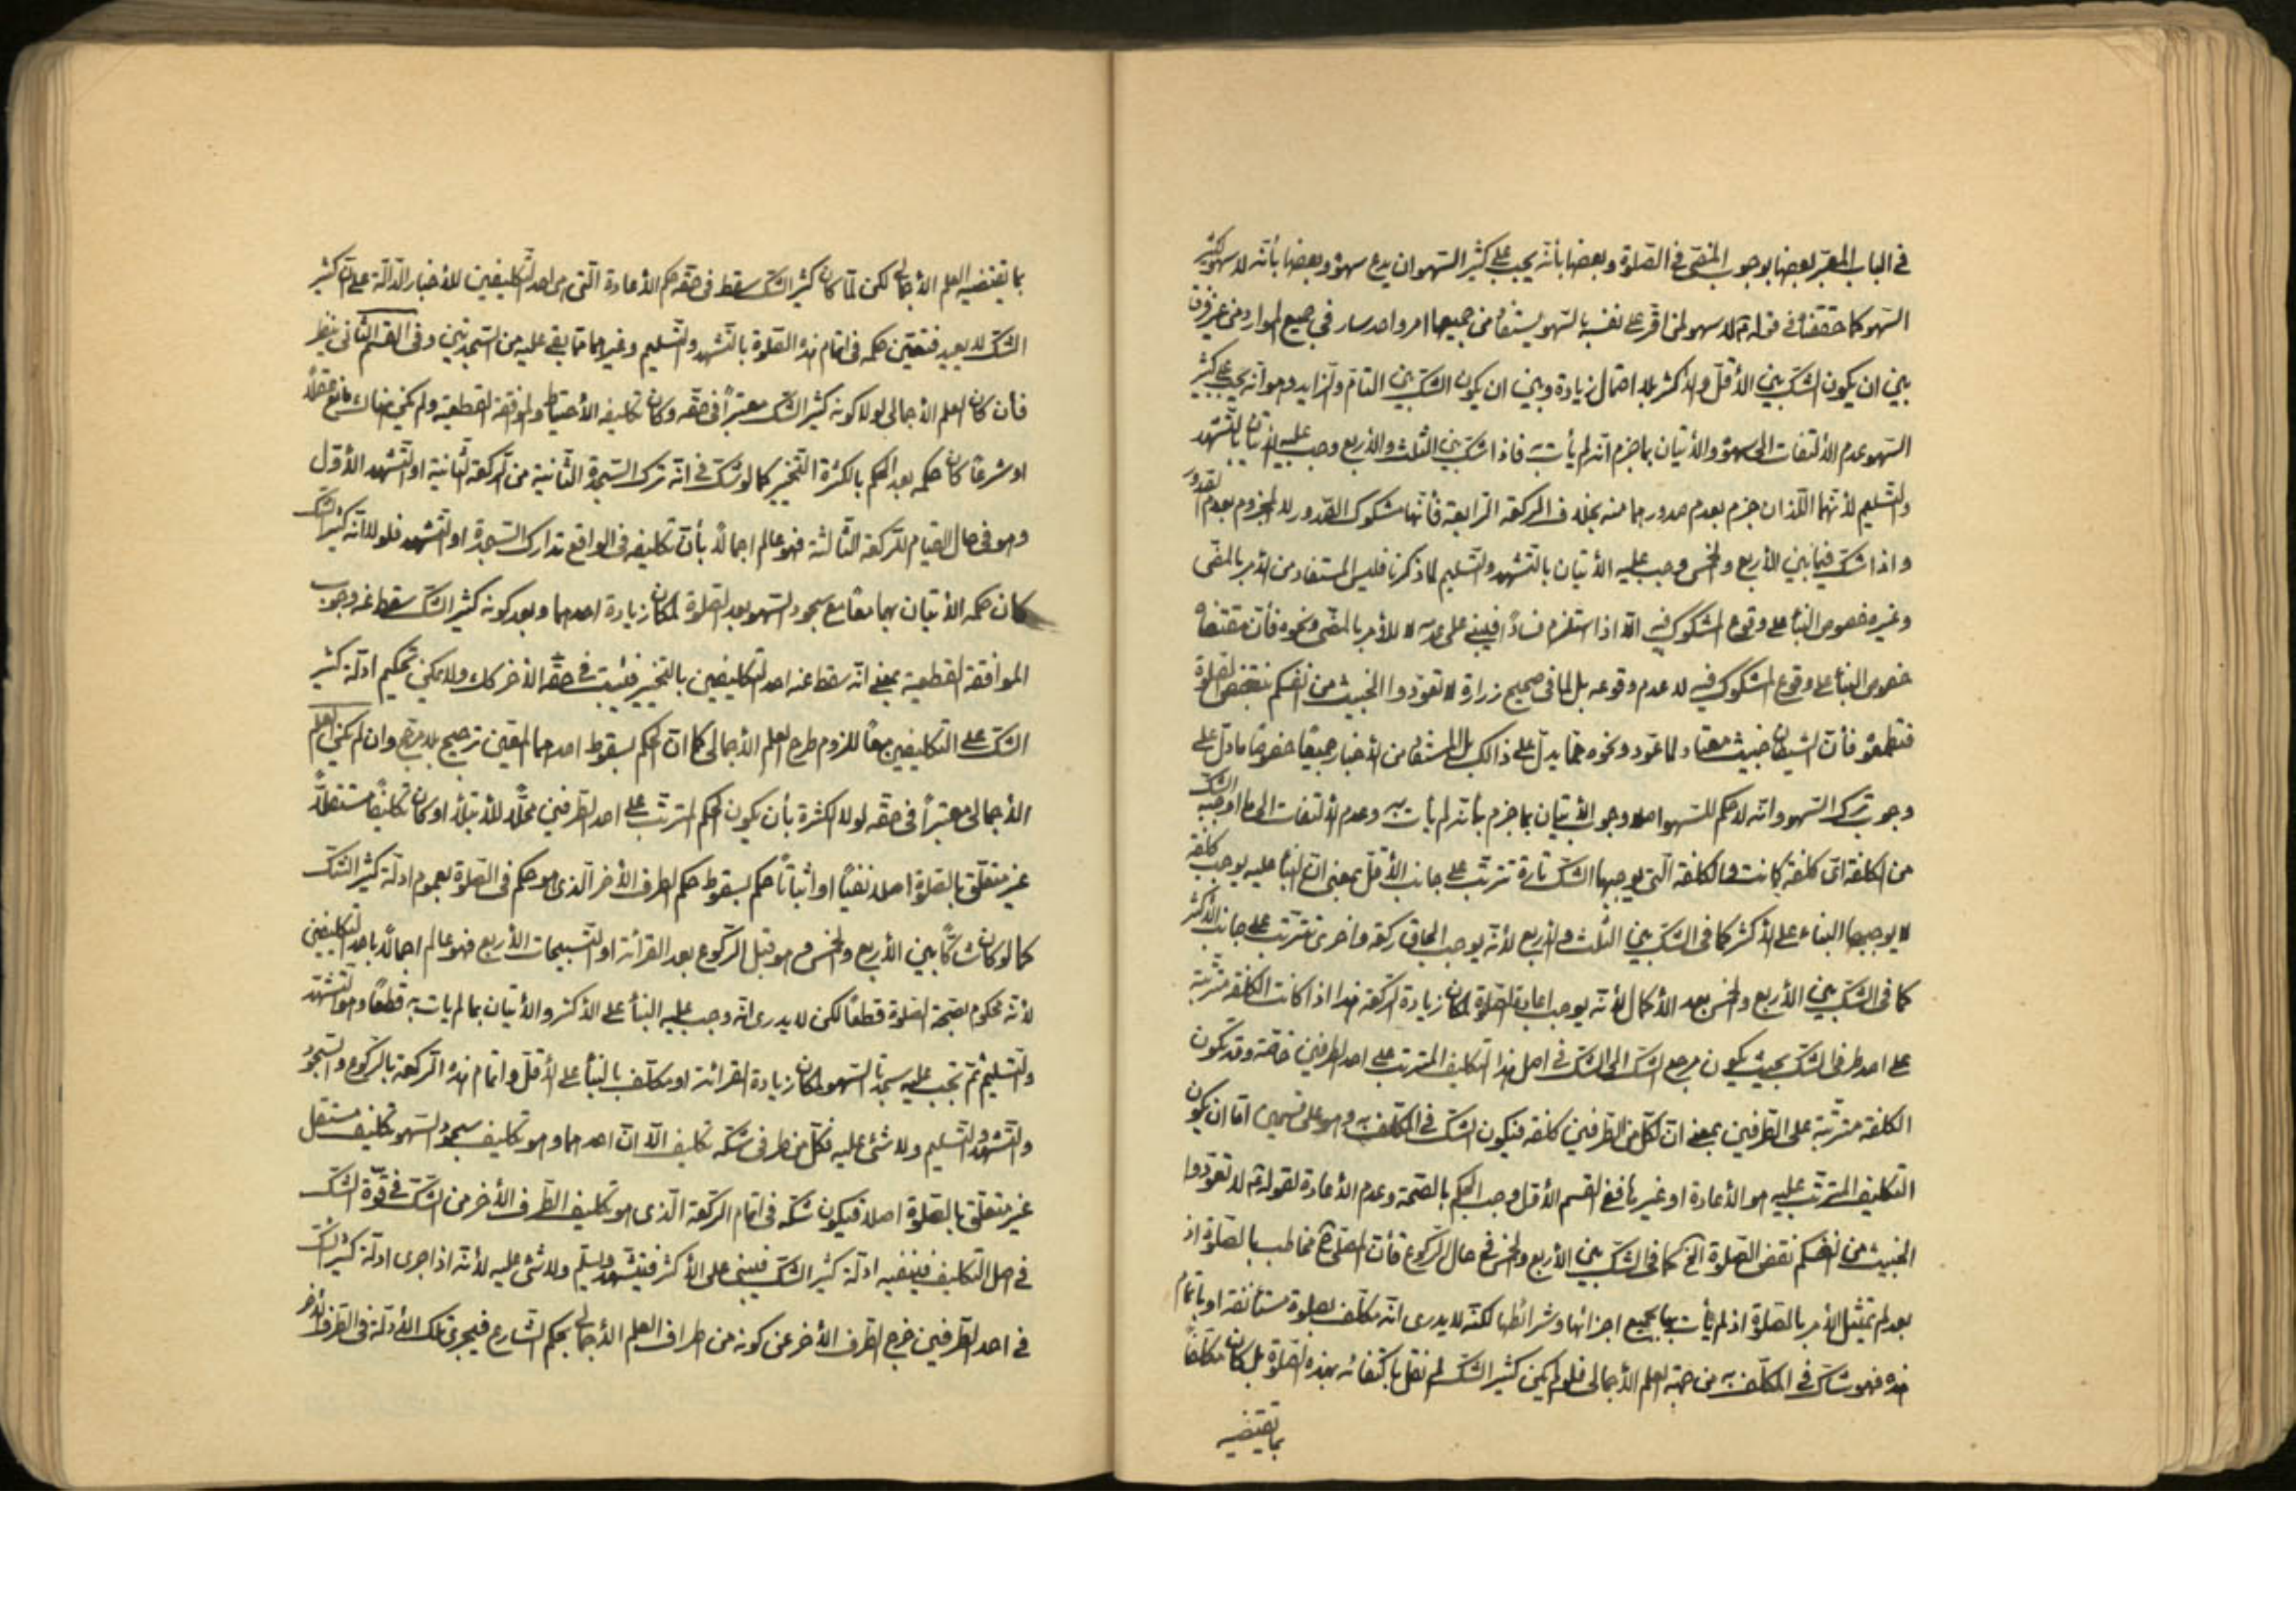 في الباب المعبّر بعضها بوجوب المضيّ في الصلوة وبعضها بأنّه يجب على كثير السّهو ان يدع سهوه وبعضها بأنّه لا سهو لكثير
السّهو كما حققناه في قوله تم لا سهو لمن اقرّ على نفسه بالسّهو يستفاد من جميعها امر واحد سار في جميع الموارد من غير فرق
بين ان يكون الشكّ بين الأقلّ والأكثر بلا احتمال زيادة وبين ان يكون الشكّ بين التامّ والزايد وهو انّه يجب على كثير
السّهو عدم الألتفات الى سهوه والأتيان بما جزم انّه لم يأت به فاذا شكّ بين الثلث والأربع وجب عليه الأتيان بالتشهّد
والتسليم لأنّهما اللّذان جزم بعدم صدورهما منه بخلاف الركعة الرابعة فأنّها مشكوك الصّدور لا المجزوم بعدم الصّدور
واذا شكّ فيما بين الأربع والخمس وجب عليه الأتيان بالتشهّد والتسليم لما ذكرنا فليس المستفاد من الأمر بالمضى
وغيره خصوص البنأ على وقوع المشكوك فيه الّا اذا استلزم فساداً فيبنى على عدمه لا للأمر بالمضى ونحوه فأنّ مقتضاه
خصوص البنأ على وقوع المشكوك فيه لا عدم وقوعه بل لما في صحيح زرارة لا تعوّدوا الخبيث من انفسكم بنقض الصلوة
فتطمعوه فأنّ الشيطان خبيث معتاد لما عوّد ونحوه ممّا يدلّ على ذالك بل المستفاد من الأخبار جميعًا خصوصًا ما دلّ على
وجوب ترك السّهو وانّه لا حكم للسّهو اصلا وجوب الأتيان بما جزم بأنّه لم يأت به وعدم الألتفات الى ما اوجبه الشكّ
من الكلفة اىّ كلفة كانت والكلفة الّتي يوجبها الشكّ تارة تترتّب على جانب الأقلّ بمعنى انّ البنأ عليه يوجب كلفة
لا يوجبها البناء على الأكثر كما في الشكّ بين الثلث والأربع لأنّه يوجب الحاق ركعة واخرى تترتّب على جانب الأكثر
كما في الشكّ بين الأربع والخمس بعد الأكمال لأنّه يوجب اعادة الصّلوة لمكان زيادة الركعة هذا اذا كانت الكلفة مترتبة
على احد طرفى الشكّ بحيث يكون مرجع الشكّ الى الشكّ في اصل هذا التكليف المترتب على احد الطرفين خاصّة وقد تكون
الكلفة مترتّبة على الطرفين بمعنى انّ لكلّ من الطرفين كلفة فيكون الشكّ في المكلّف به وهو على قسمين امّا ان يكون
التكليف المترتّب عليه هو الأعادة او غيرها ففى القسم الأوّل وجب الحكم بالصّحة وعدم الأعادة لقوله تم لا تعوّدوا
الخبيث من انفسكم نقض الصلوة الخ كما في الشكّ بين الأربع والخمس في حال الركوع فأنّ المصلّى ح مخاطب بالصّلوة اذ
بعد لم يمتثل الأمر بالصّلوة اذ لم يأت بها بجميع اجزائها وشرائطها لكنّه لا يدرى انّه مكلّف بصلوة مستأنفة او باتمام
هذه فهو شاكّ في المكلّف به من جهة العلم الأجمالى فلو لم يكن كثير الشكّ لم نقل باكتفائه بهذه الصّلوة بل كان مكلّفًا
بما يقتضيه
بما يقتضيه العلم الأجمالى لكن لمّا كان كثير الشكّ سقط في حقّه حكم الأعادة الّتى هى احد التكليفين للأخبار الدّالة على انّ كثير
الشكّ لا يعيد فتعيّن حكمه في اتمام هذه الصّلوة بالتشهّد والتسليم وغيرهما ممّا بقى عليه من السّجدتين وفى القسم الثّانى ينظر
فأن كان العلم الأجمالى لولا كونه كثير الشكّ معتبراً في حقّه وكان تكليفه الأحتياط والموافقة القطعية ولم يكن هناك مانع عقلاً
او شرعًا كان حكمه بعد الحكم بالكثرة التّخيير كما لو شكّ في انّه ترك السّجدة الثّانية من الركعة الثّانية او التشهّد الأوّل
وهو في حال القيام للرّكعة الثّالثة فهو عالم اجمالًا بأنّ تكليفه في الواقع تدارك السّجدة او التشهّد فلو لا انّه كثير الشكّ
كان حكمه الأتيان بهما معًا مع سجود السّهو بعد الصّلوة لمكان زيادة احدهما وبعد كونه كثير الشكّ سقط عنه وجوب
الموافقة القطعية بمعنى انّه سقط عنه احد التكليفين بالتّخيير فيثبت في حقّه الأخر كك ولا يمكن تحكيم ادلّة كثير
الشكّ على التكليفين معًا للزوم طرح العلم الأجمالى كما انّ الحكم بسقوط احدهما المعيّن ترجيح بلا مرجّح وان لم يكن العلم
الأجمالى معتبراً في حقّه لولا الكثرة بأن يكون الحكم المترتّب على احد الطرفين محلّا للأبتلأ او كان تكليفًا مستقلًّا
غير متعلّق بالصّلوة اصلا نفيًا او اثباتًا حكم بسقوط حكم الطرف الأخر الّذى هو حكم في الصّلوة بعموم ادلّة كثير الشكّ
كما لو كان شاكًّا بين الأربع والخمس وهو قبل الرّكوع بعد القرائة او التسبيحات الأربع فهو عالم اجمالًا باحد التكليفين
لأنّه محكوم بصّحة الصلوة قطعًا لكن لا يدرى انّه وجب عليه البنأ على الأكثر والأتيان بما لم يات به قطعًا وهو التشهّد
والتسليم ثمّ تجب عليه سجدتا السّهو لمكان زيادة القرائة او مكلّف بالبنأ على الأقلّ واتمام هذه الركعة بالرّكوع والسّجود
والتشهّد والتسليم ولا شئ عليه فكلّ من طرفى شكّه تكليف الّا انّ احدهما وهو تكليف سجود السّهو تكليف مستقل
غير متعلّق بالصّلوة اصلا فيكون شكّه في اتمام الركعة الّذى هو تكليف الطّرف الأخر من الشكّ في قوّة الشكّ
في اصل التكليف فينفيه ادلّة كثير الشكّ فيبنى على الأكثر فيتشهّد ويسلّم ولا شئ عليه لأنّه اذا جرى ادلّة كثير الشكّ
في احد الطّرفين خرج الطّرف الأخر عن كونه من اطراف العلم الأجمالى بحكم الشّارع فيجرى تلك الأدلّة في الطّرف الأخر